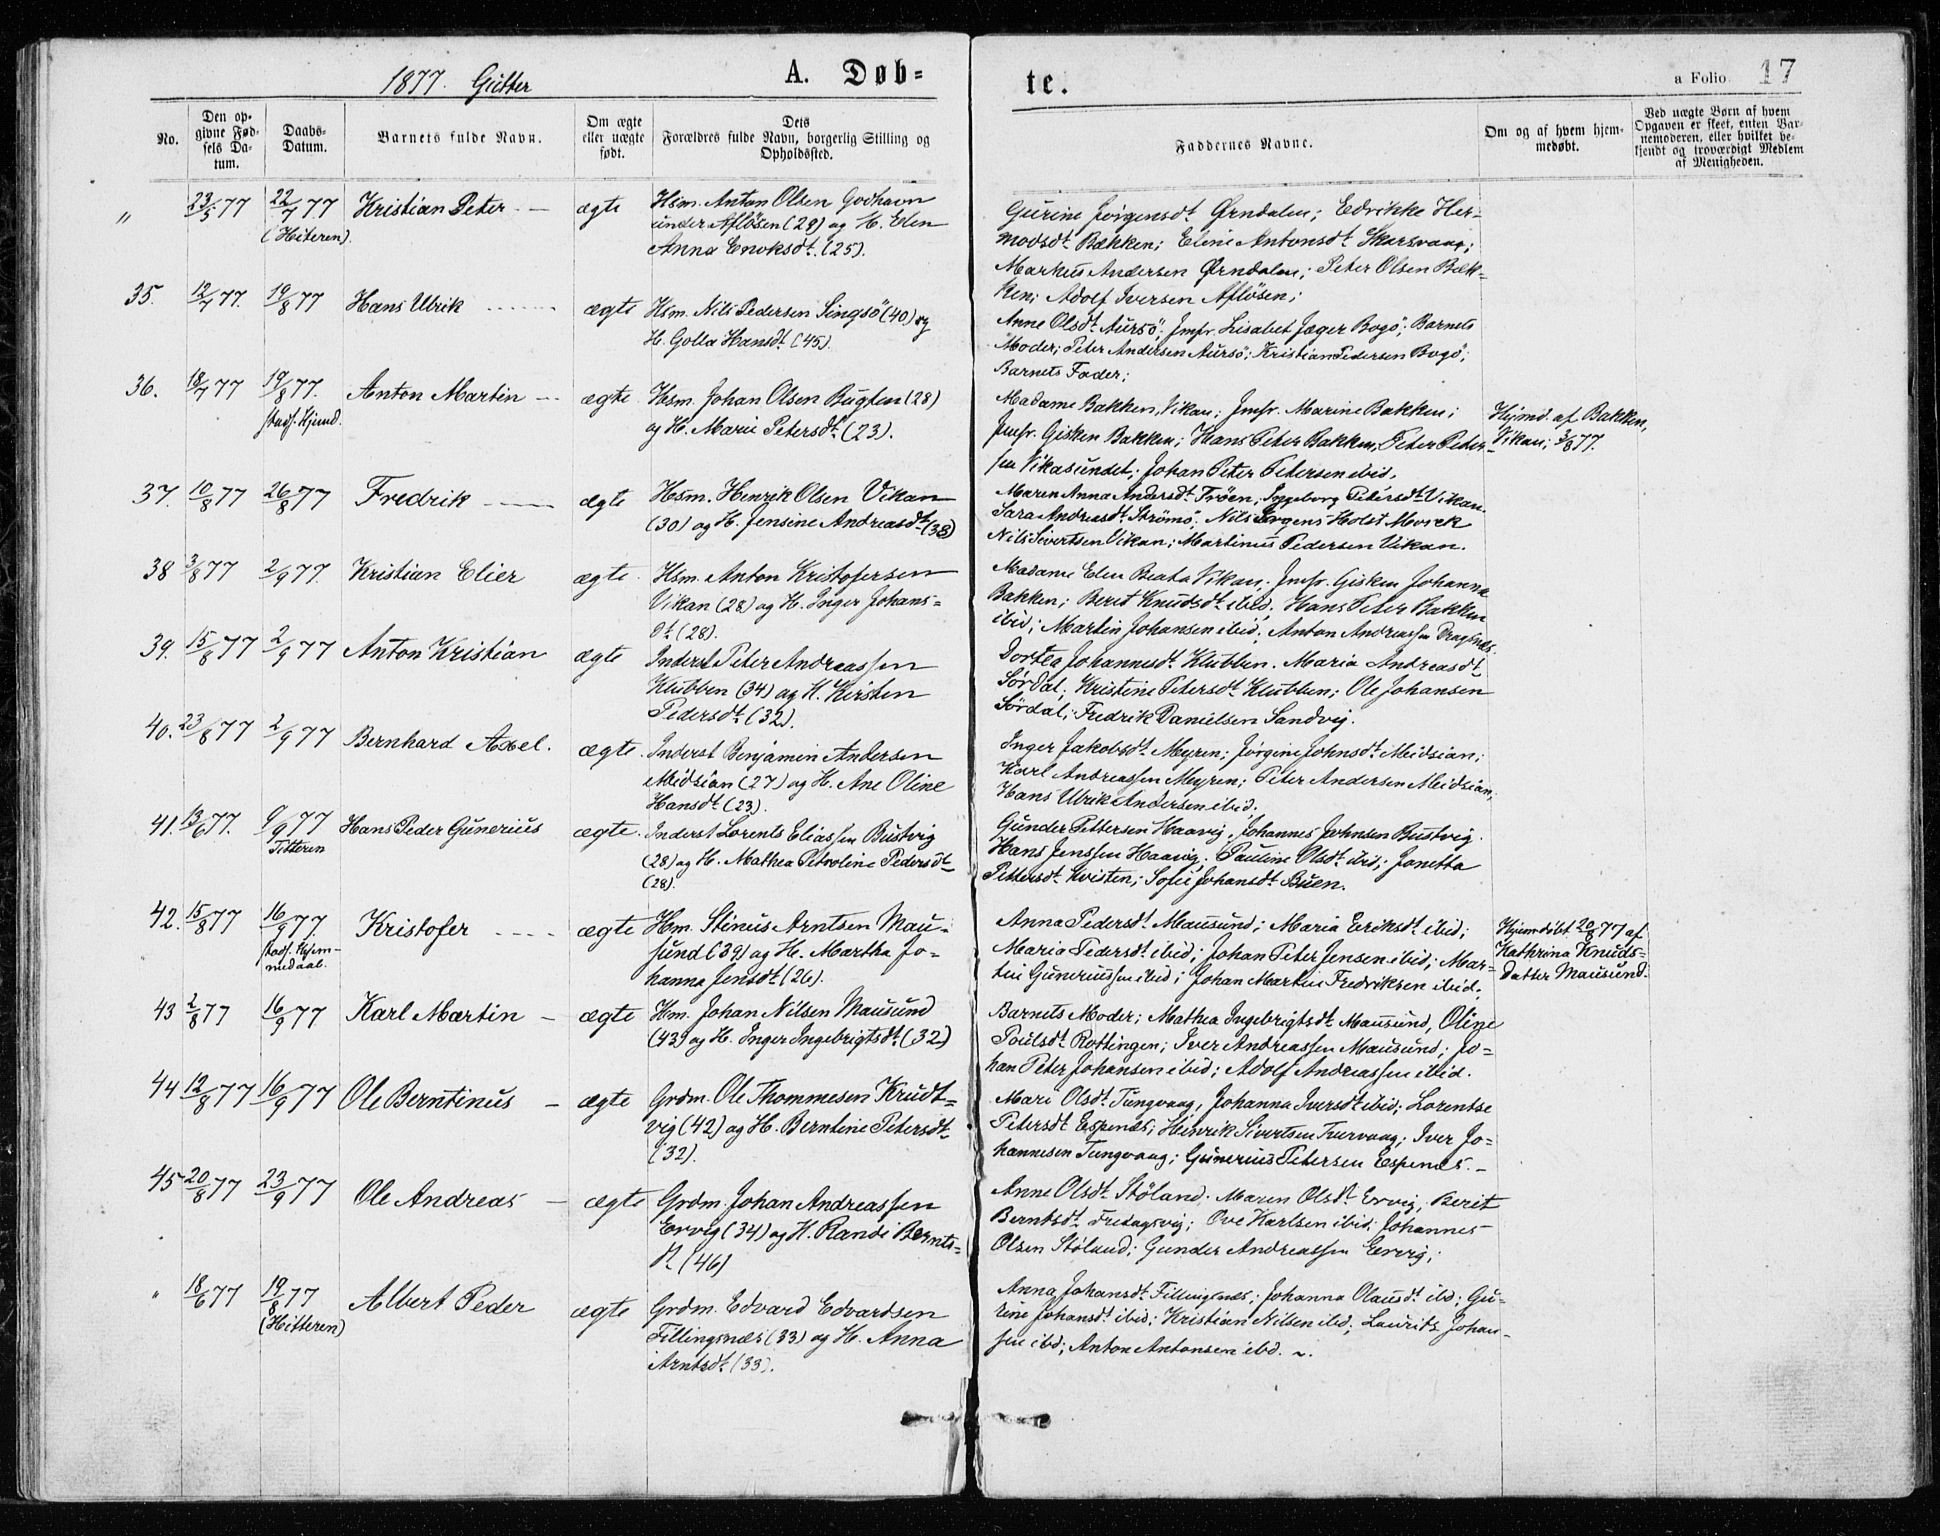 1877. Gutter
A. Døb=
te.
a Folio 17
No.
Den op-
givne Fød-
sels Da-
tum.
Daabs-
Datum.
Barnets fulde Navn.
Om ægte
eller uægte
født.
Dets
Forældres fulde Navn, borgerlig Stilling og
Opholdssted.
Faddernes Navne.
Om og af hvem hjem-
medøbt.
Ved uægte Børn af hvem
Opgaven er skeet, enten Bar-
nemoderen, eller hvilket be-
kjendt og troværdigt Medlem
af Menigheden.
" 23/5 77 22/7 77 Kristian Peter - ægte
(Hitteren).
Hsm. Anton Olsen Godhavn
under Afløsen (29) og H. Elen
Anna Enoksdt. (25).
Gurine Jørgensdt. Ørndalen; Edrikke Her-
modsdt. Bækken; Eline Antonsdt. Skarsvaag;
Markus Andersen Ørndalen; Peter Olsen Bæk-
ken; Adolf Iversen Afløsen;
35. 12/7 77. 19/8 77 Hans Ulrik ægte
Hsm. Nils Pedersen Singsö (40) og
H. Golla Hansdt. (45).
Anne Olsdt. Aursö; Jmfr. Lisabet Jæger Bogö; Barnets
Moder; Peter Andersen Aursö; Kristian Pedersen Bogö;
Barnets Fader;
36. 18/7 77 19/8 77. Anton Martin - ægte
stadf. Hjmd.
Hsm. Johan Olsen Bugten (28)
og H. Marie Petersdt. (23).
Madame Bakken, Vikan; Jmfr. Marine Bakken;
Jmfr. Gisken Bakken; Hans Peter Bakken, Peter Peter-
sen Vikasundet; Johan Peter Petersen ibid.
Hjmd. af Bakken,
Vikan; 3/8 77.
37. 10/8 77 26/8 77 Fredrik ægte
Hsm. Henrik Olsen Vikan
(30) og H. Jensine Andreasdt. (38)
Maren Anna Andersdt. Trøen; Ingeborg Petersdt. Vikan.
Sara Andreasdt. Strömö; Nils Jørgens Holst Morck
Nils Sivertsen Vikan; Martinus Pedersen Vikan.
38 3/8 77 2/9 77. Kristian Elier ægte.
Hsm. Anton Kristofersen
Vikan (28) og H. Inger Johans=
dt. (28).
Madame Elen Beata Vikan; Jmfr. Gisken Johanna
Bakken; Berit Knudsdt. ibid. Hans Peter Bakken
ibid; Martin Johansen ibid; Anton Andreassen Dragsnes.
39. 15/8 77 2/9 77 Anton Kristian ægte
Inderst Peter Andreassen
Klubben (34) og H. Kirsten
Pedersdt. (32).
Dortea Johannesdt. Klubben. Maria Andreasdt.
Sørdal; Kristine Petersdt. Klubben; Ole Johansen
Sördal; Fredrik Danielsen Sandvig.
40. 23/8 77 2/9 77 Bernhard Axel. ægte.
Inderst Benjamin Andersen
Midsian (27) og H. Ane Oline
Hansdt. (23).
Inger Jakobsdt. Myren; Jørgine Johnsdt. Midsian;
Karl Andreassen Myren; Peter Andersen Meidsian;
Hans Ulrik Andersen ibid.
41. 13/6 77. 9/9 77 Hans Peder Gunerius ægte.
Titteren
Inderst Lorents Eliassen Bustvig
(28) og H. Mathea Petroline Pedersdt.
(28).
Gunder Pettersen Haavig, Johannes Johnsen Bustvig.
Hans Jenssen Haavig; Pauline Olsdt. ibid; Jonetta
Pettersdt. Kvisten; Sofie Johansdt. Buen.
42. 15/8 77 16/9 77. Kristofer ægte
stadf. Hjem-
medaab.
Hm. Stinus Arntsen Mau-
sund (39) og H. Martha Jo=
hanna Jensdt. (26).
Anna Pedersdt. Mausund; Maria Eriksdt. ibid;
Maria Pedersdt. ibid; Johan Peter Jensen ibid; Mar-
tin Guneriussen ibid; Johan Martin Fredriksen ibid;
Hjemdöbt 20/8 77 af
Kathrina Knuds=
datter Mausund.
43 2/8 77 16/9 77 Karl Martin - ægte
Hm. Johan Nilsen Mausund
(43) og H. Inger Ingebrigtsdt. (32)
Barnets Moder; Mathea Ingebrigtsdt. Mausund, Oline
Poulsdt. Rottingen; Iver Andreassen Mausund; Jo=
han Peter Johansen ibid; Adolf Andreassen ibid.
44 12/8 77 16/9 77 Ole Berntinus - ægte
Grdm. Ole Thommesen Krudt=
vig (42) og H. Berntine Petersdt.
(32).
Mari Olsdt. Tungvaag, Johanna Iversdt. ibid; Lorentse
Petersdt. Espenes; Henrik Sivertsen Tvervaag; Iver Jo=
hannesen Tungvaag; Gunerius Petersen Espenes. -
45 20/8 77 23/9 77 Ole Andreas - ægte
Grdm. Johan Andreassen
Ervig (34) og H. Randi Bernts=
dt. (46)
Anne Olsdt. Stöland. Maren Olsdt. Ervig; Berit
Berntsdt. Fredagsvig; Ove Karlsen ibid; Johannes
Olsen Stöland; Gunder Andreassen Ervig;
" 18/6 77 19/8 77 Albert Peder ægte
(Hitteren)
Grdm. Edvard Edvardsen
Fillingsnæs (33) og H. Anna
Arntsdt. (33).
Anna Johansdt. Fillingsnæs; Johanna Olausdt. ibd; Gu-
rine Johansdt. ibid; Kristian Nilsen ibd; Laurits Johan-
sen ibd; Anton Antonsen ibd. ~.